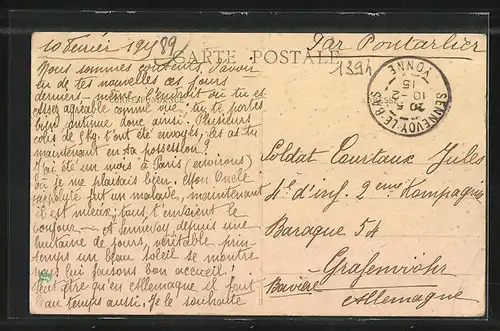 10 Février 1915
89
CARTE POSTALE
Par Pontarlier
1394
SENNEVOY-LE-BAS
YONNE
20
10 -2
15
CORRESPONDANCE
Nous sommes contents d'avoir
eu de tes nouvelles ces jours
derniers, même l'endroit où tu es
assez agréable comme vue; tu te portes
bien continue donc ainsi. Plusieurs
colis de 5 kg. t'ont été envoyés, les as-tu
maintenant en ta possession?
J'ai été un mois à Paris (environs)
où je me plaisais bien. Mon Oncle
Hippolyte fut un malade, maintenant
il est mieux; tous t'envoient le
bonjour — A Sennevoy depuis une
huitaine de jours, véritable prin-
temps un beau soleil se montre
nous lui faisons bon accueil!
Peut être qu'en Allemagne il fait
beau temps aussi. Je le souhaite
Soldat Courtaux Jules
4e d'inf. 2eme Kompagnie
Baraque 54
Grafenwöhr
Bavière
Allemagne